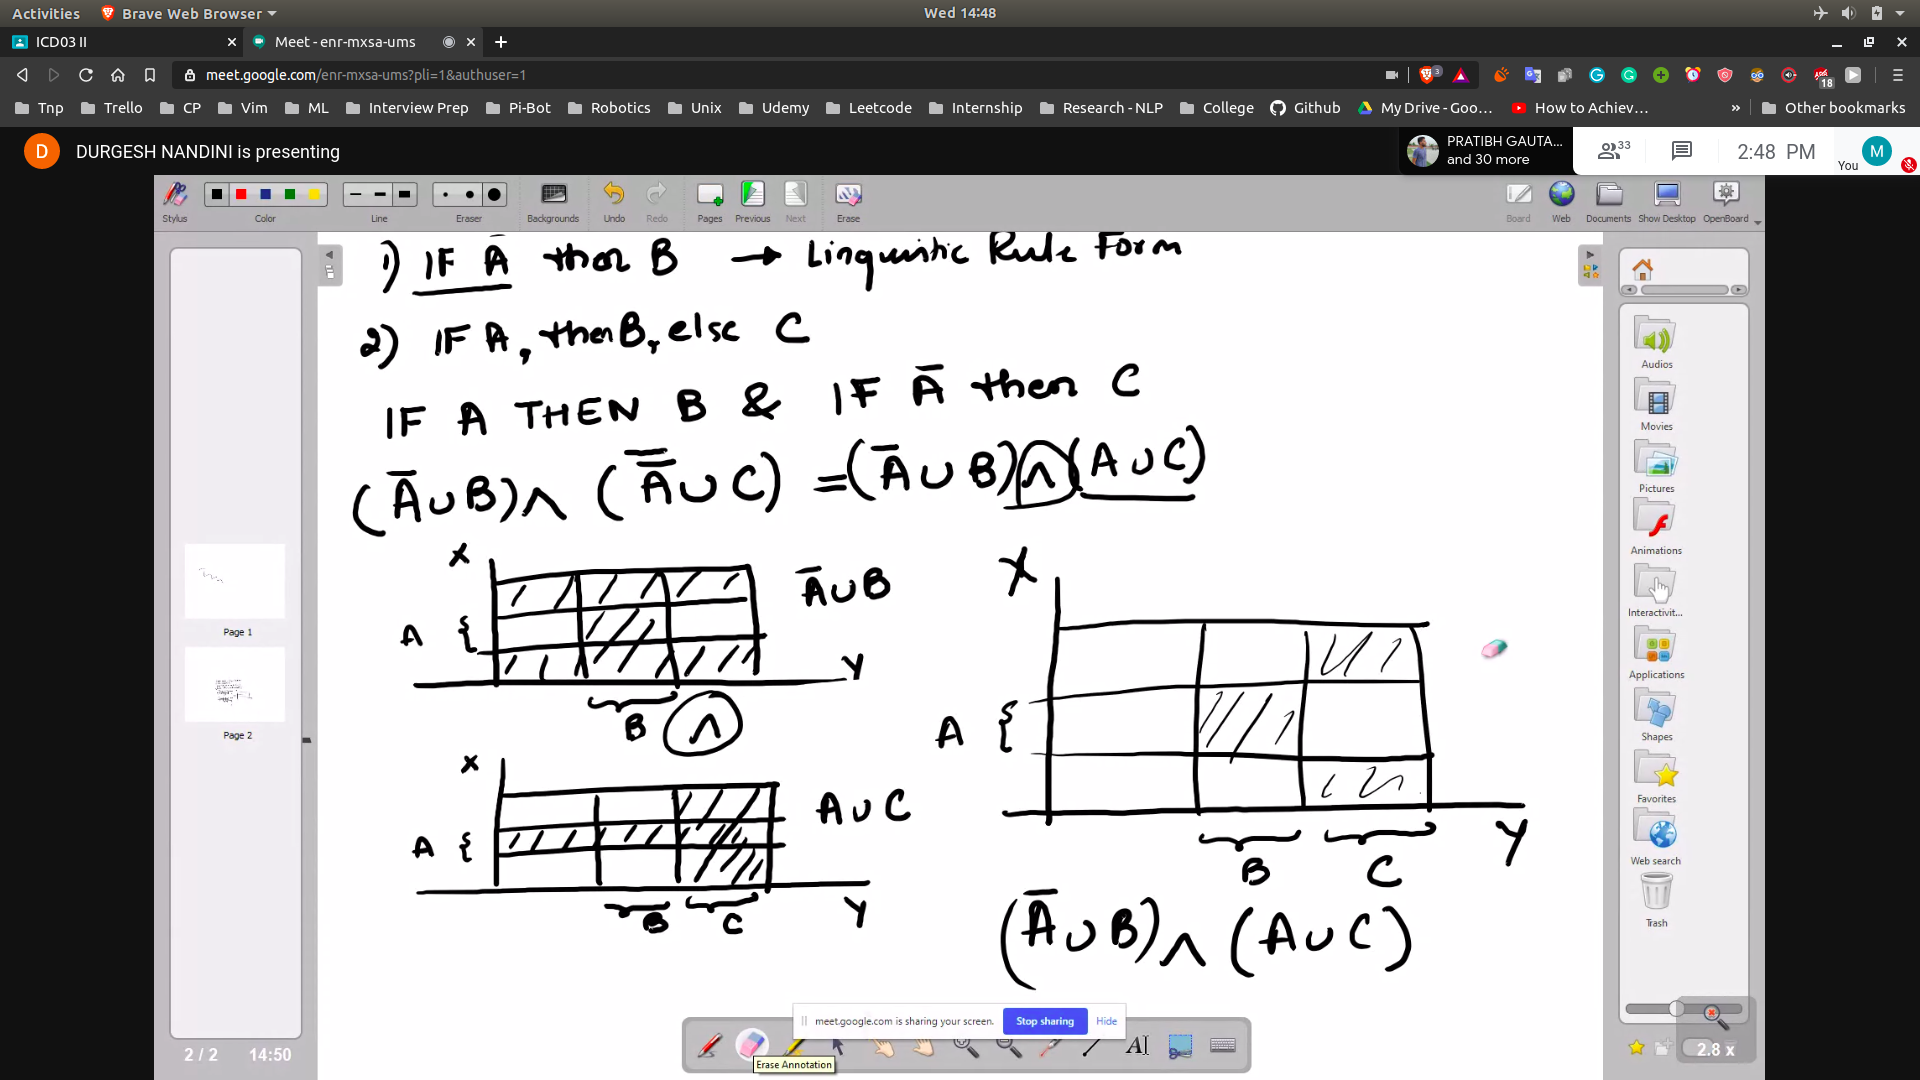 Activities Brave Web Browser Wed 14:48
ICD03 II Meet - enr-mxsa-ums
meet.google.com/enr-mxsa-ums?pli=1&authuser=1 3 18
Tnp Trello CP Vim ML Interview Prep Pi-Bot Robotics Unix Udemy Leetcode Internship Research - NLP College Github My Drive - Goo... How to Achiev... » Other bookmarks
D DURGESH NANDINI is presenting PRATIBH GAUTA... and 30 more 33 2:48 PM You M
Stylus Color Line Eraser Backgrounds Undo Redo Pages Previous Next Erase Board Web Documents Show Desktop OpenBoard
1) IF A̅ then B → Linguistic Rule Form
2) IF A, then B, else C
IF A THEN B & IF A̅ then C
(A̅ ∪ B) ∧ (A̿ ∪ C) = (A̅ ∪ B) ∧ (A ∪ C)
X
A̅ ∪ B
A {
Y
B
∧
X
A ∪ C
A {
B C
Y
X
A {
B C
Y
(A̅ ∪ B) ∧ (A ∪ C)
Page 1
Page 2
Audios
Movies
Pictures
Animations
Interactivit...
Applications
Shapes
Favorites
Web search
Trash
meet.google.com is sharing your screen. Stop sharing Hide
Erase Annotation
2 / 2 14:50
2.8 x